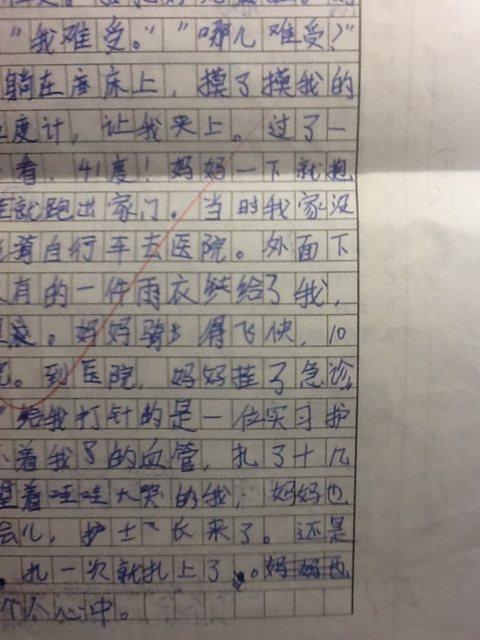 "我难受。""哪儿难受?"
躺在床上,摸了摸我的
度计,让我夹上。过了一
看,41度!妈妈一下就抱
就跑出家门。当时我家没
着自行车去医院。外面下
有的一件雨衣给了我,
。妈妈骑得飞快,10
。到医院,妈妈挂了急诊,
给我打针的是一位实习护
着我了的血管,扎了十几
望着哇哇大哭的我,妈妈也
会儿,护士长来了。还是
,扎一次就扎上了。妈妈也
个心中。